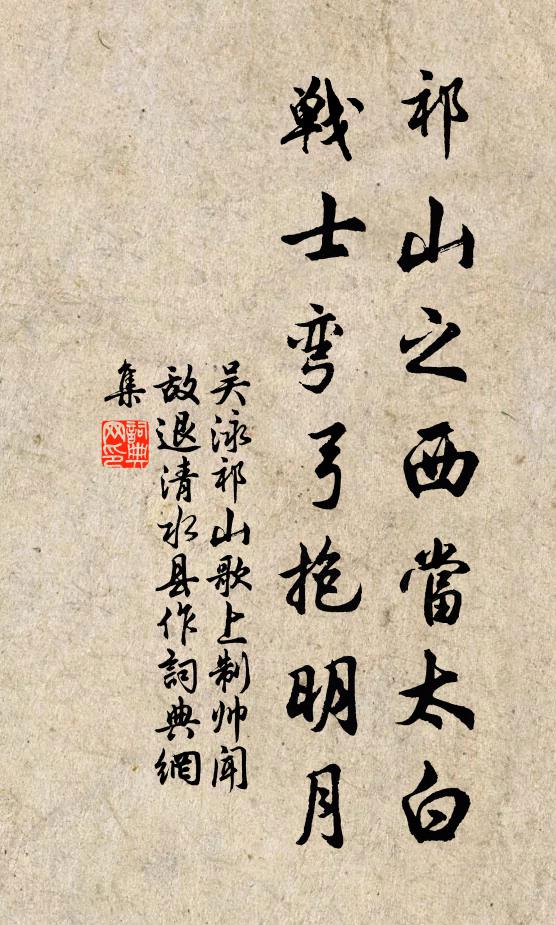 祁山之西當太白
戦士弯弓抱明月
吴泳祁山歌上制帅闻
敌退清水县作詞典網
集
詞典
网印